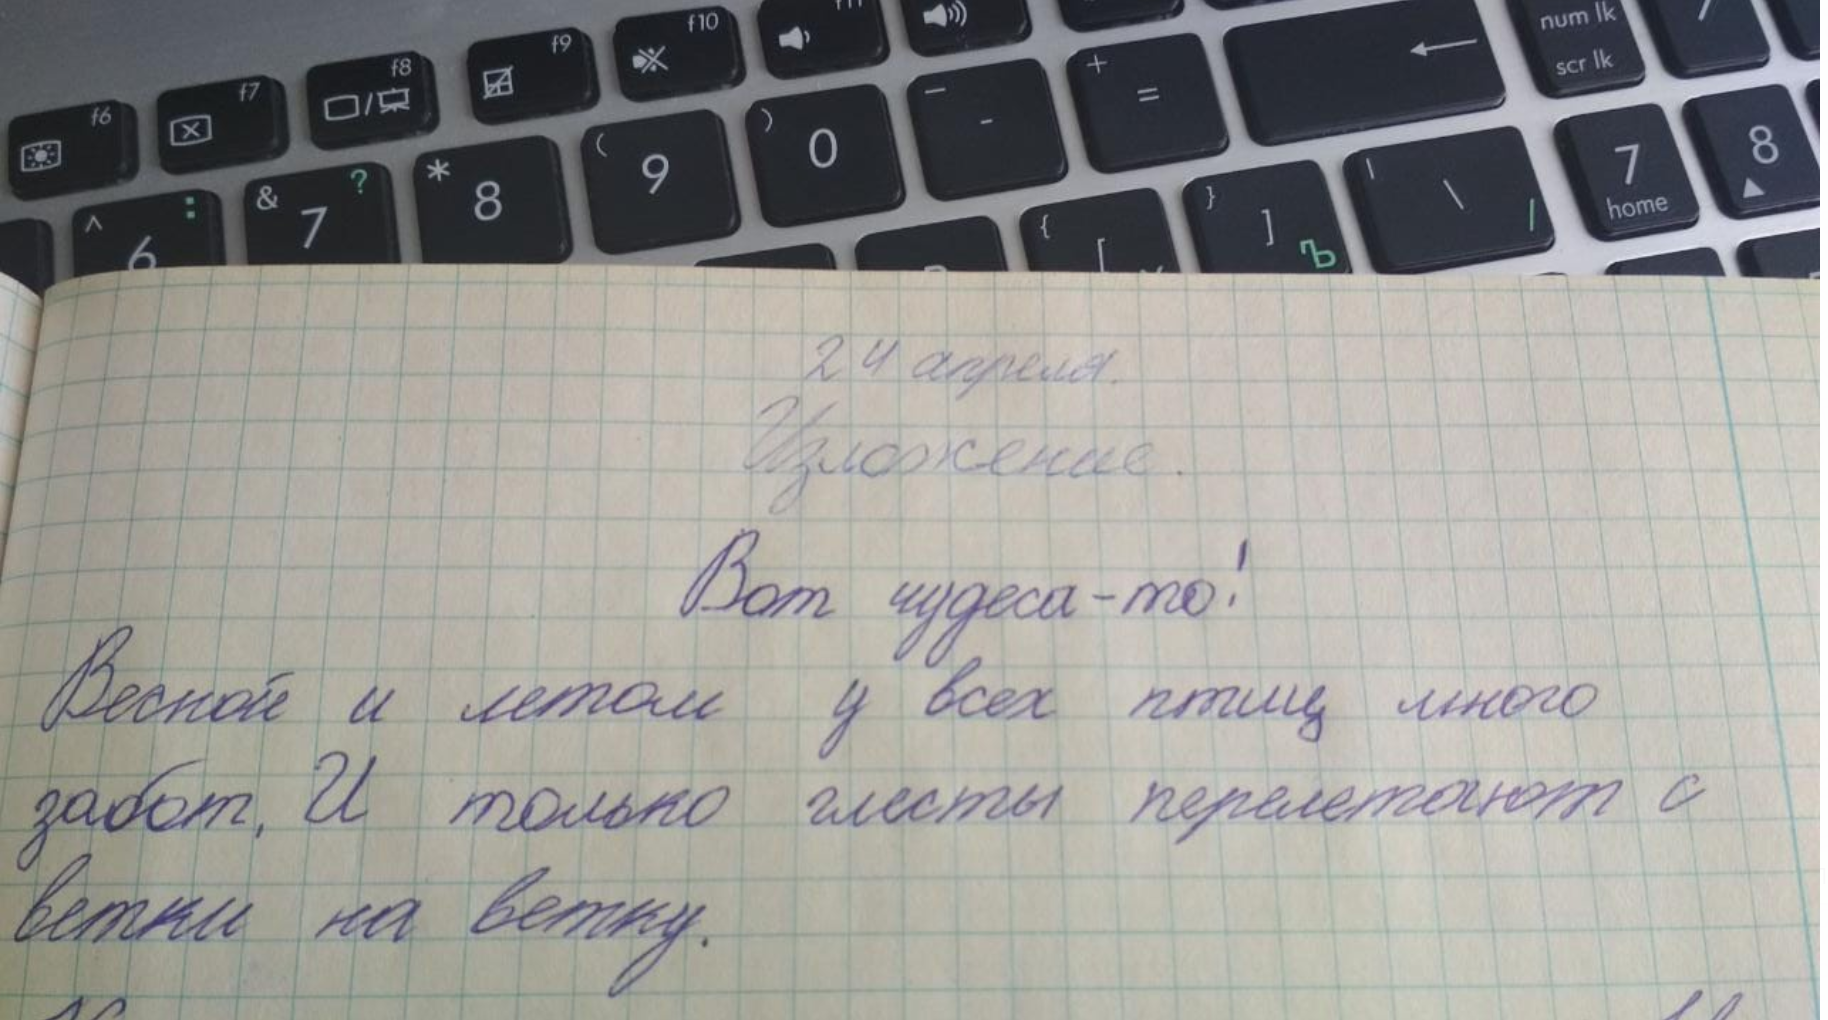 f6 f7 f8 f9 f10 f11
^ 6 : & 7 ? * 8 ( 9 ) 0 _ - + = num lk scr lk 7 home 8
{ [ } ] Ъ | \ /
24 апреля.
Изложение.
Вот чудеса-то!
Весной и летом у всех птиц много
забот. И только глесты перелетают с
ветки на ветку.